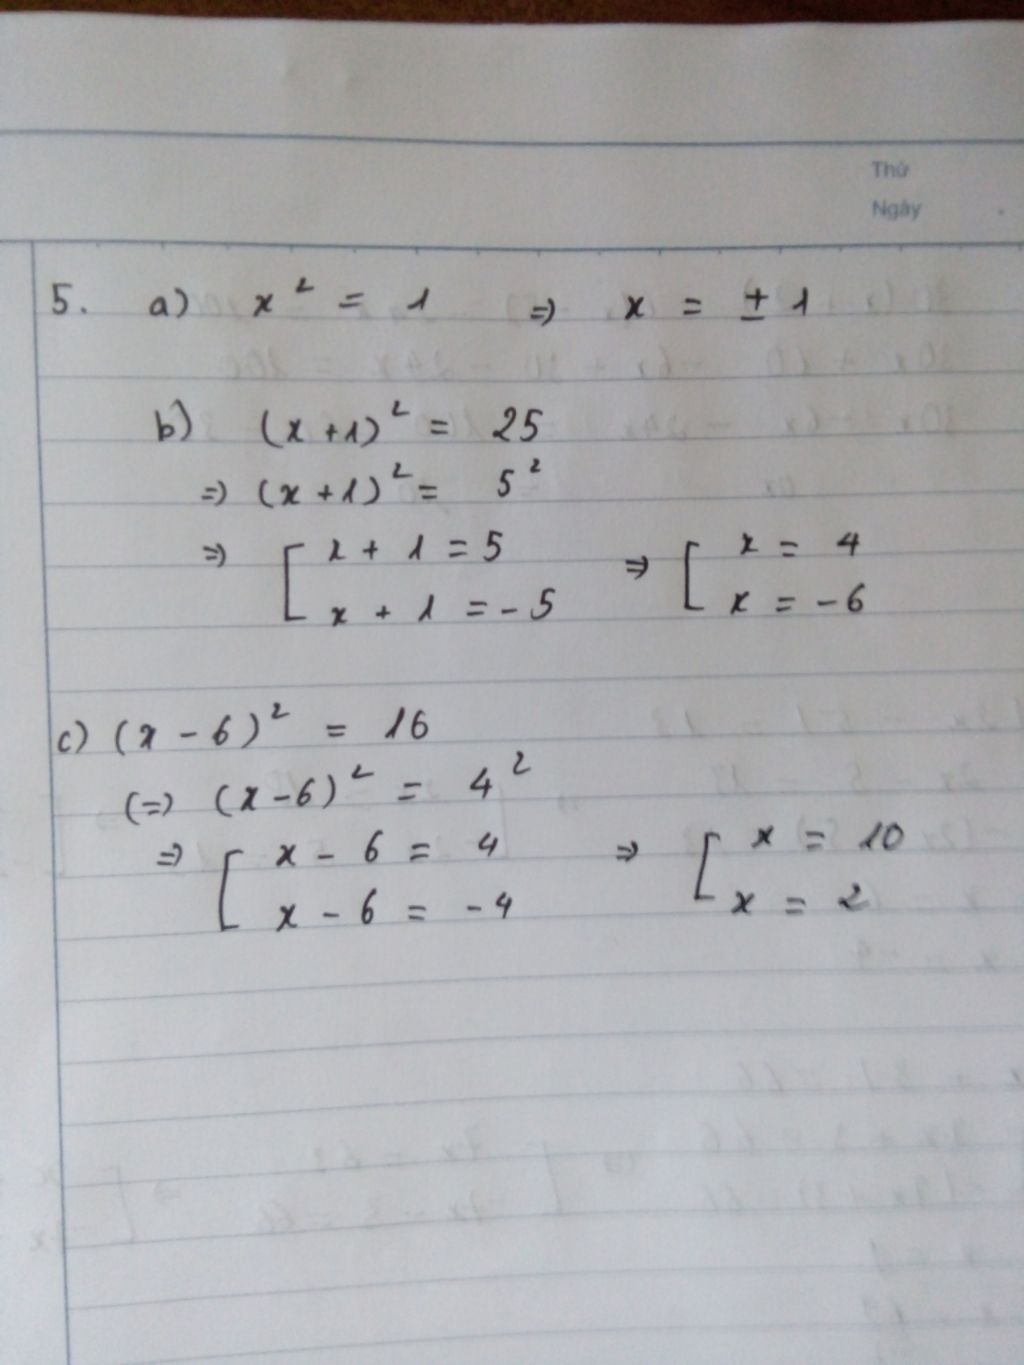 Thứ
Ngày
5. a) x² = 1 => x = ± 1
b) (x+1)² = 25
=> (x+1)² = 5²
=> [ x + 1 = 5 => [ x = 4
x + 1 = -5 x = -6
c) (x - 6)² = 16
(=) (x-6)² = 4²
=> [ x - 6 = 4 => [ x = 10
x - 6 = -4 x = 2